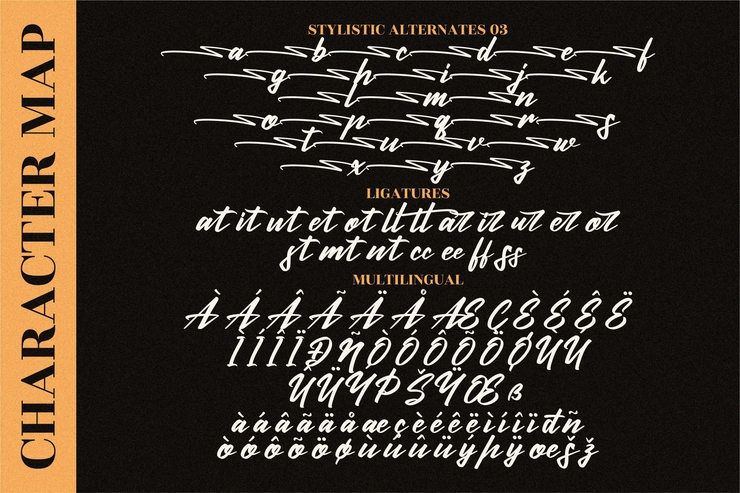 CHARACTER MAP
STYLISTIC ALTERNATES 03
a b c d e f
g h i j k
l m n
o p q r s
t u v w
x y z
LIGATURES
at it ut et ot lt tt ar ir ur er or
st mt nt cc ee ff ss
MULTILINGUAL
À Á Â Ã Ä Å Æ Ç È É Ê Ë
Ì Í Î Ï Ð Ñ Ò Ó Ô Õ Ö Ø Ù Ú
Û Ü Ý Þ Š Ÿ Œ ß
à á â ã ä å æ ç è é ê ë ì í î ï đ ñ
ò ó ô õ ö ø ù ú û ü ý þ ÿ œ š ž